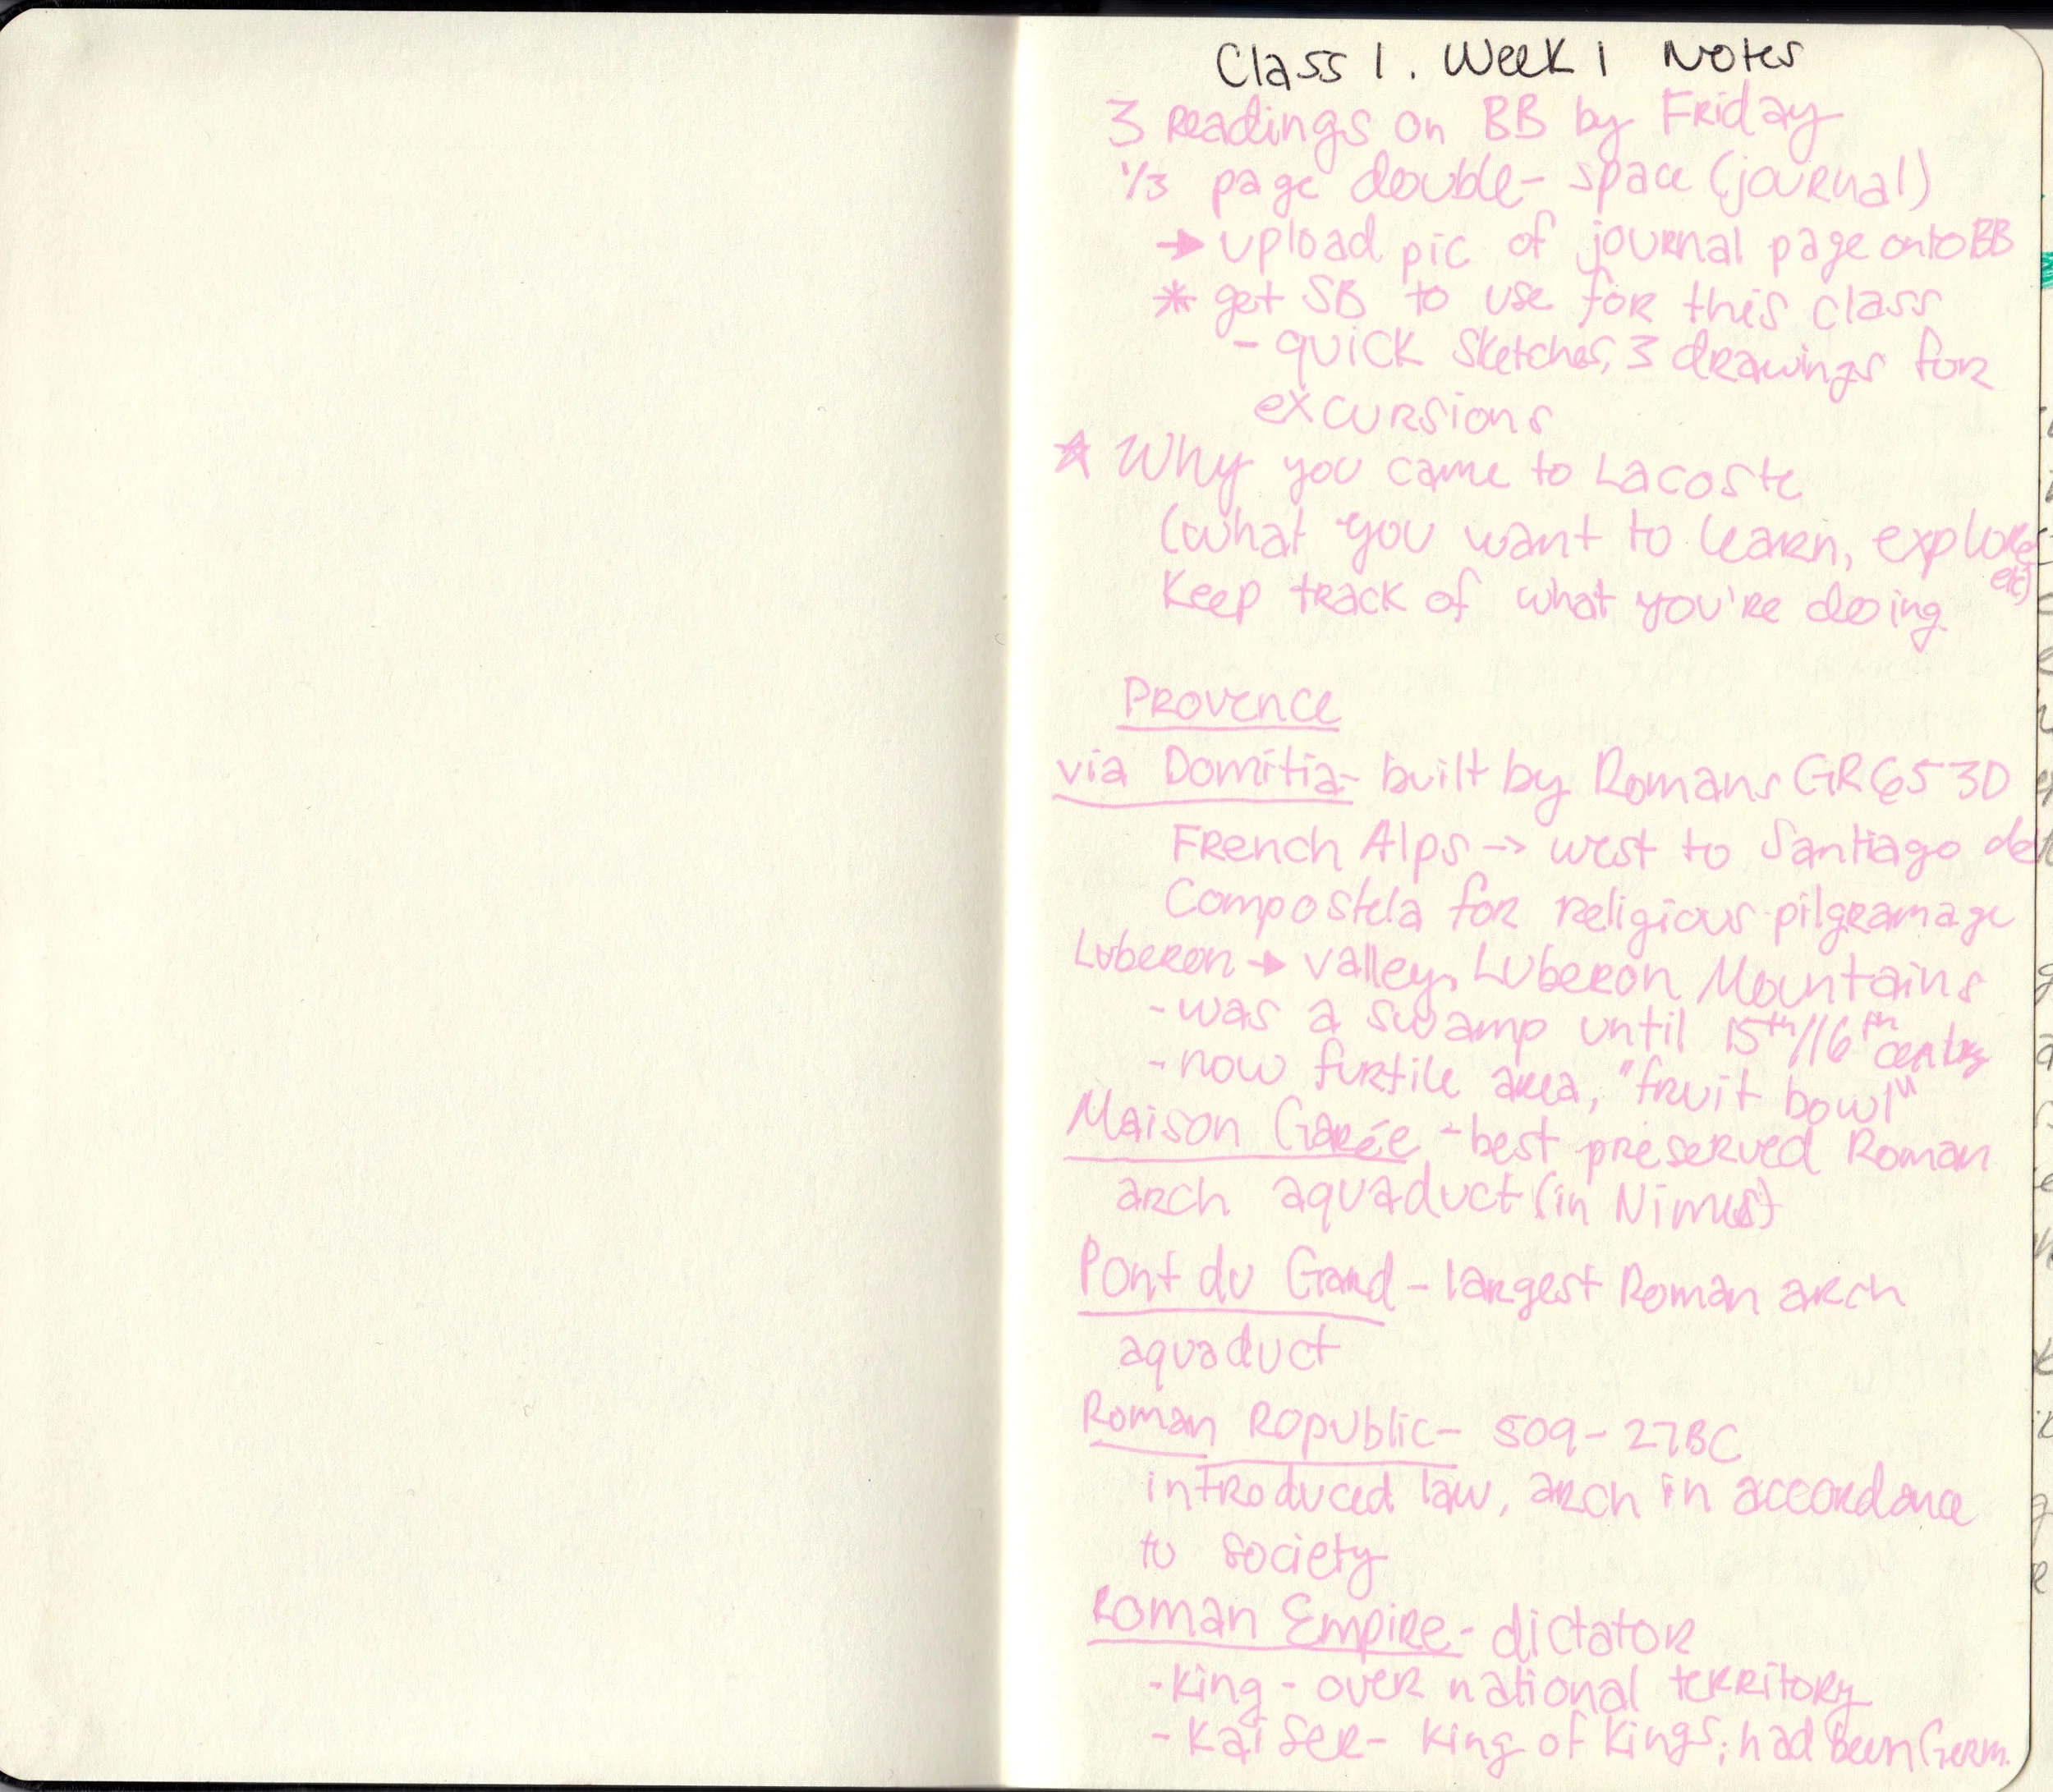 Class 1. Week 1 Notes
3 readings on BB by Friday
1/3 page double-space (journal)
→ upload pic of journal page onto BB
* get SB to use for this class
- quick sketches, 3 drawings for
excursions
☆ Why you came to Lacoste
(what you want to learn, explore
etc)
Keep track of what you're doing.
Provence
via Domitia- built by Romans GR653D
French Alps -> west to Santiago de
Compostela for religious pilgramage
Luberon → valley, Luberon Mountains
- was a swamp until 15th/16th century
- now furtile area, "fruit bowl"
Maison Carée - best preserved Roman
arch aquaduct (in Nimes)
Pont du Gard - largest Roman arch
aquaduct
Roman Republic- 509-27BC
introduced law, arch in accordance
to society
Roman Empire- dictator
- King - over national territory
- Kaiser- King of Kings; had been Germ.